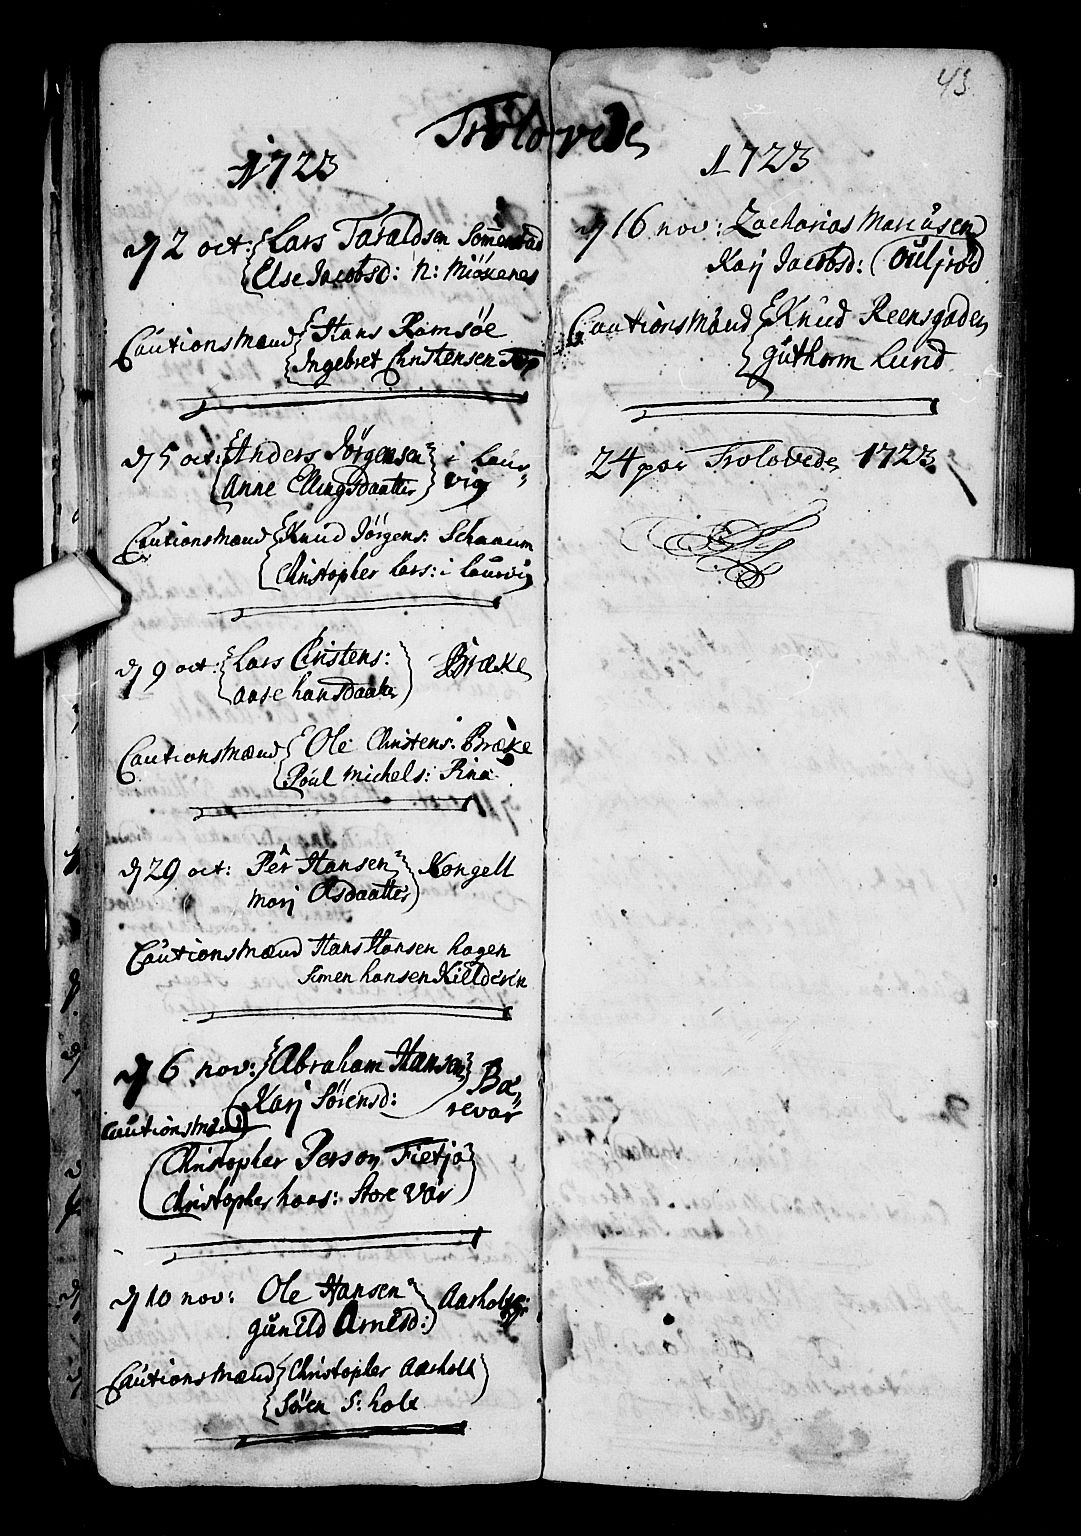 43
Trolovede
1723
dj 2 oct: Lars Taraldsen Sömmerstad
Else Jacobsd: N: Miösenes
Cautionsmænd Hans Ramsöe
Ingebret Christensen Top
dj 5 oct: Anders Jörgensen i Laur-
Anne Ellingsdaatter vig
Cautionsmænd Knud Jörgens: Schauum
Christopher Lars: i Laurvig
dj 9 oct: Lars Christens: Bræke
aase hansdaatter
Cautionsmænd Ole Christens: Bræke
Poul michels: Rina
dj 29 oct: Pêr Hansen Kongell
marj Olsdaatter
Cautionsmænd Hans Hansen hagen
Simen hansen Killderin
dj 6 nov: Abraham Hansen Bæ-
Karj Sörensd: revar
Cautionsmænd
Christopher Person Fietjo
Christopher haas: Store Vår
dj 10 nov: Ole Hansen Aarholt
gunild Arnesd:
Cautionsmænd Christopher Aarholt
Sören S: holt
1723
dj 16 nov: Zacharias Marcusen
Karj Jacobsd: Ouljrod
Cautionsmænd Knud Reensgaden
guthorm Lund
24 par Trolovede 1723